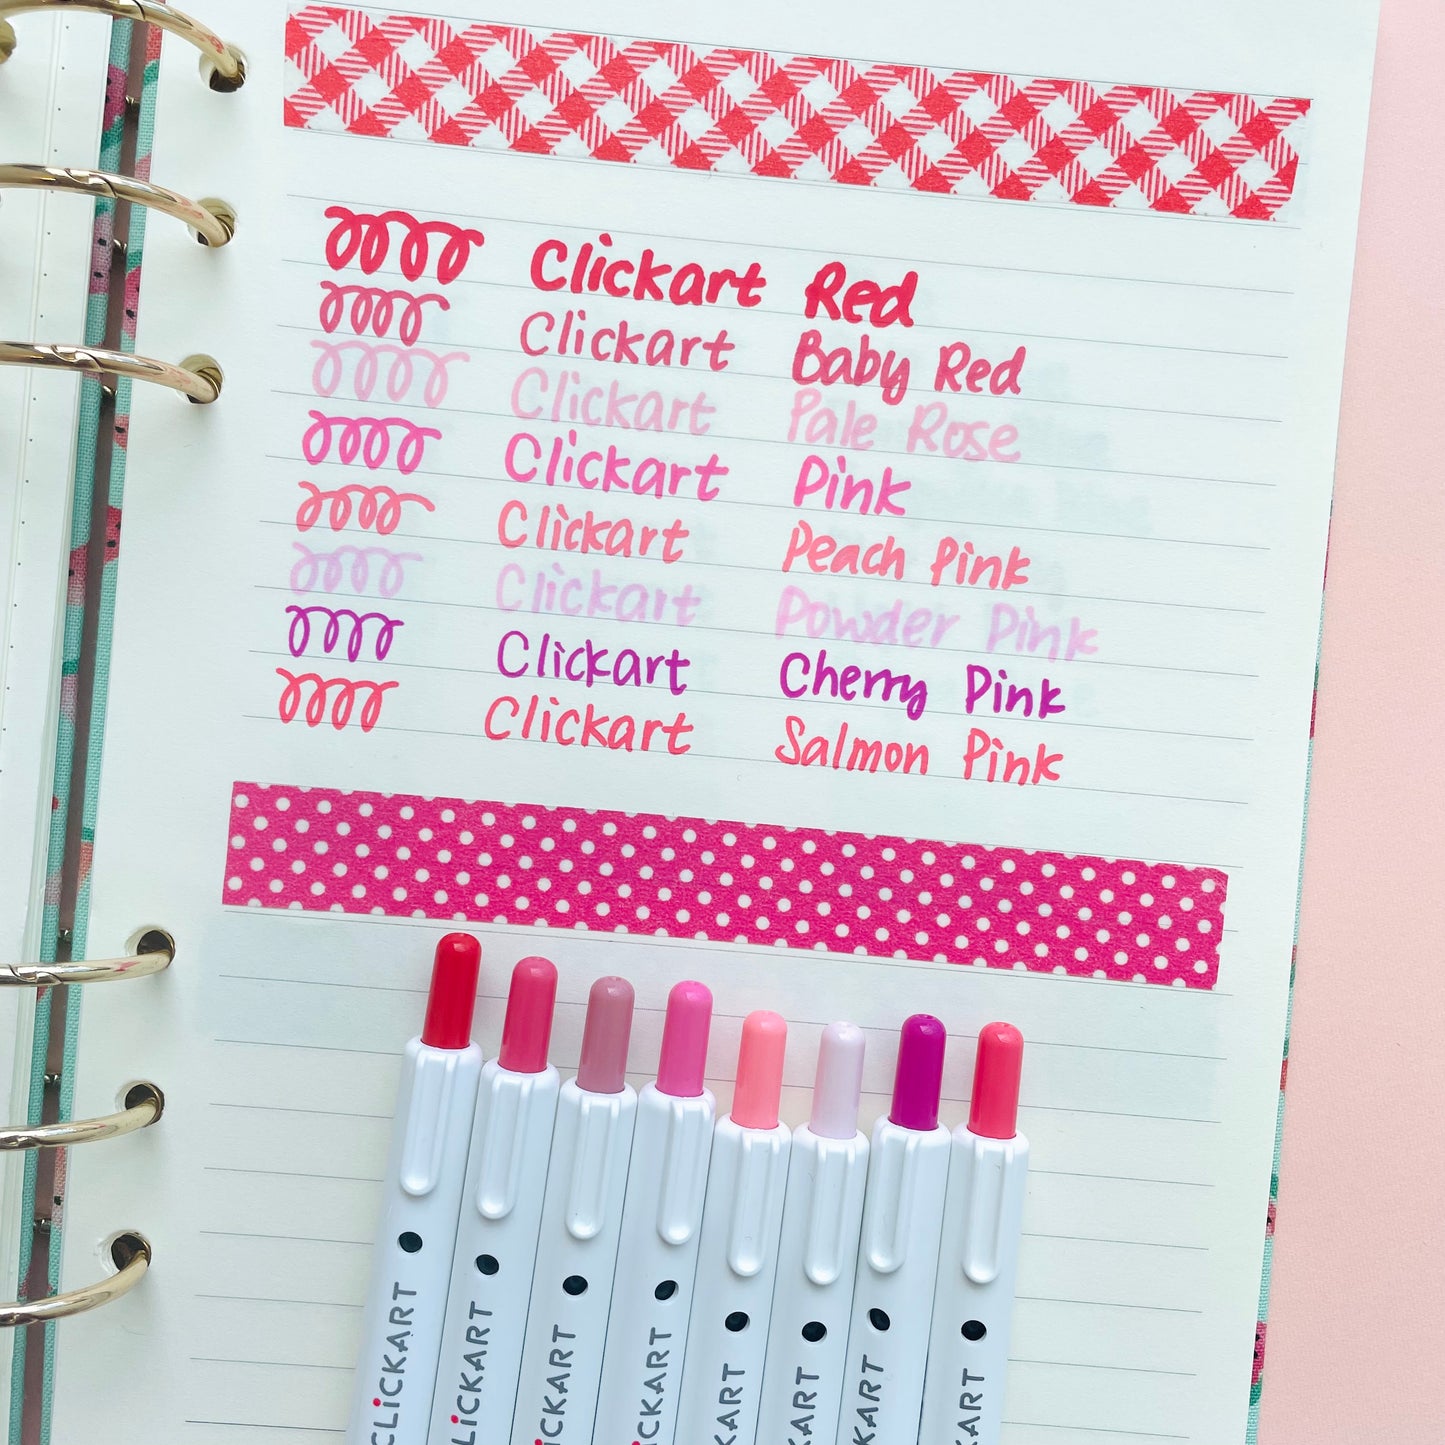 Clickart Red
Clickart Baby Red
Clickart Pale Rose
Clickart Pink
Clickart Peach Pink
Clickart Powder Pink
Clickart Cherry Pink
Clickart Salmon Pink
CLiCKART
CLiCKART
iCKART
iCKART
KART
KART
KART
KART